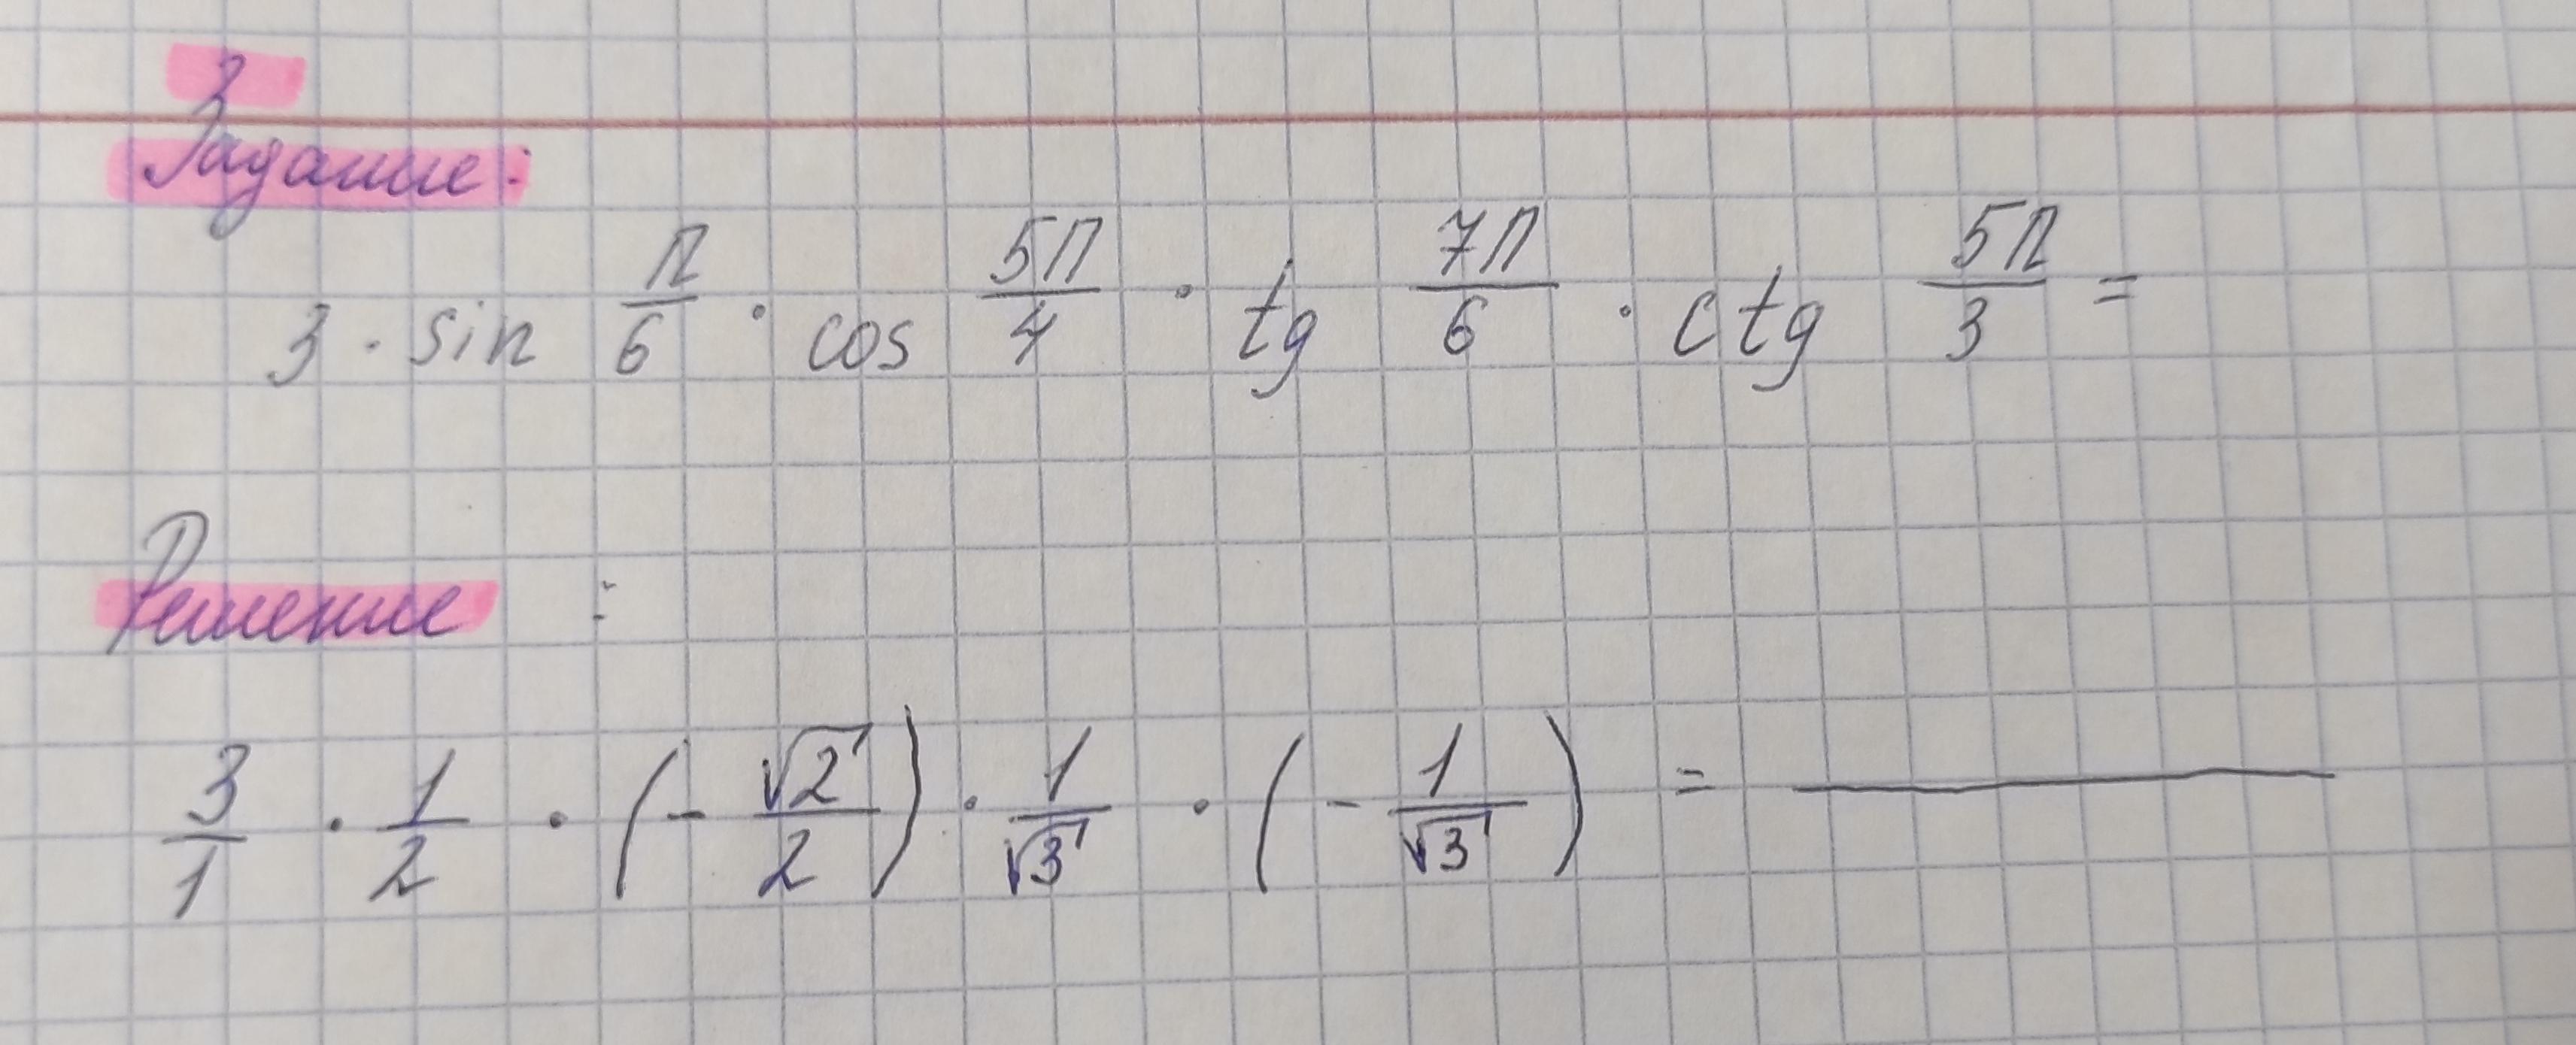 3
Задание:
3 · sin π/6 · cos 5π/4 · tg 7π/6 · ctg 5π/3 =
Решение :
3/1 · 1/2 · (- √2/2) · 1/√3 · (- 1/√3) = ———